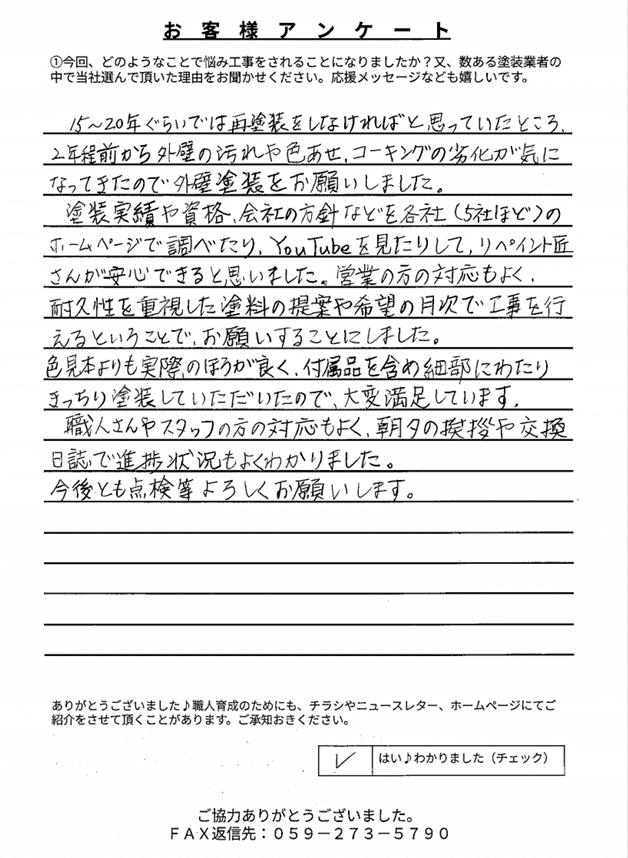 お客様アンケート
①今回、どのようなことで悩み工事をされることになりましたか?又、数ある塗装業者の
中で当社選んで頂いた理由をお聞かせください。応援メッセージなども嬉しいです。
15~20年ぐらいでは再塗装をしなければと思っていたところ、
2年程前から外壁の汚れや色あせ、コーキングの劣化が気に
なってきたので外壁塗装をお願いしました。
塗装実績や資格、会社の方針などを各社(5社ほど)の
ホームページで調べたり、YouTubeを見たりして、リペイント匠
さんが安心できると思いました。営業の方の対応もよく、
耐久性を重視した塗料の提案や希望の月次で工事を行
えるということで、お願いすることにしました。
色見本よりも実際のほうが良く、付属品を含め細部にわたり
きっちり塗装していただいたので、大変満足しています。
職人さんやスタッフの方の対応もよく、朝夕の挨拶や交換
日誌で進捗状況もよくわかりました。
今後とも点検等よろしくお願いします。
ありがとうございました♪職人育成のためにも、チラシやニュースレター、ホームページにてご
紹介をさせて頂くことがあります。ご承知おきください。
✓ はい♪わかりました(チェック)
ご協力ありがとうございました。
FAX返信先:059-273-5790